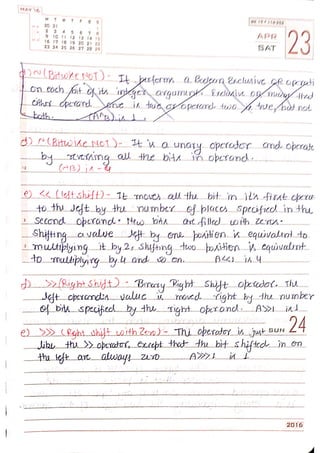 MAY'16
M T W T F S S
30 31
2 3 4 5 6 7 8
9 10 11 12 13 14 15
16 17 18 19 20 21 22
23 24 25 26 27 28 29
APR
SAT
23
d) ~ (Bitwise NOT) - It performs a Boolean Exclusive OR operati
on each bit of its integer argument. Exclusive OR means that
either operand one is true or operand two is true, but not
both. (A^B) is 1.
d) ~ (Bitwise NOT) - It is a unary operator and operate
by reversing all the bits in operand.
(~B) is -4
e) << (left shift) - It moves all the bit in it's first opera
to the left by the number of places specified in the
second operand. New bits are filled with zeros.
Shifting a value left by one position is equivalent to
multiplying it by 2, shifting two position is equivalent
to multiplying by 4 and so on. A<<1 is 4
f) >> (Right Shift) - Binary Right Shift operator. The
left operand's value is moved right by the number
of bits specified by the right operand. A>>1 is 1
e) >>> (Right shift with Zero) - This operator is just
SUN 24
like the >> operator, except that the bit shifted in on
the left are always zero A>>>1 is 1.
2016